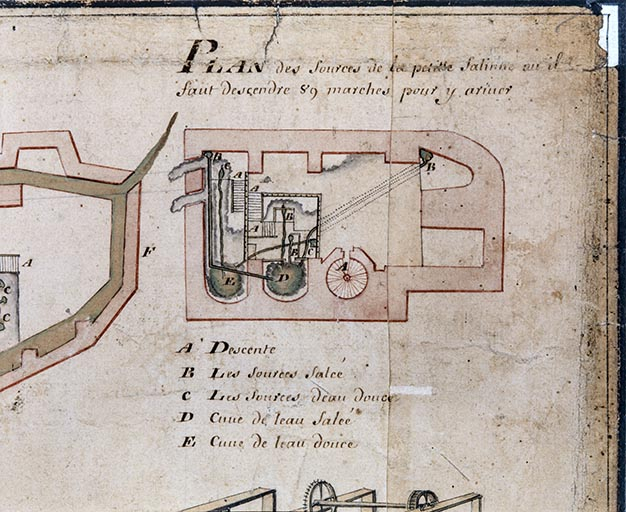 PLAN des sources de la petitte salinne ou il
faut descendre 89 marches pour y ariver
B
C
A
A
B
B
A
B
C
A
D
E
F
A
C
C
A Descente
B Les sources salcé
C Les sources deau douce
D Cuue de leau salcé
E Cuue de leau douce